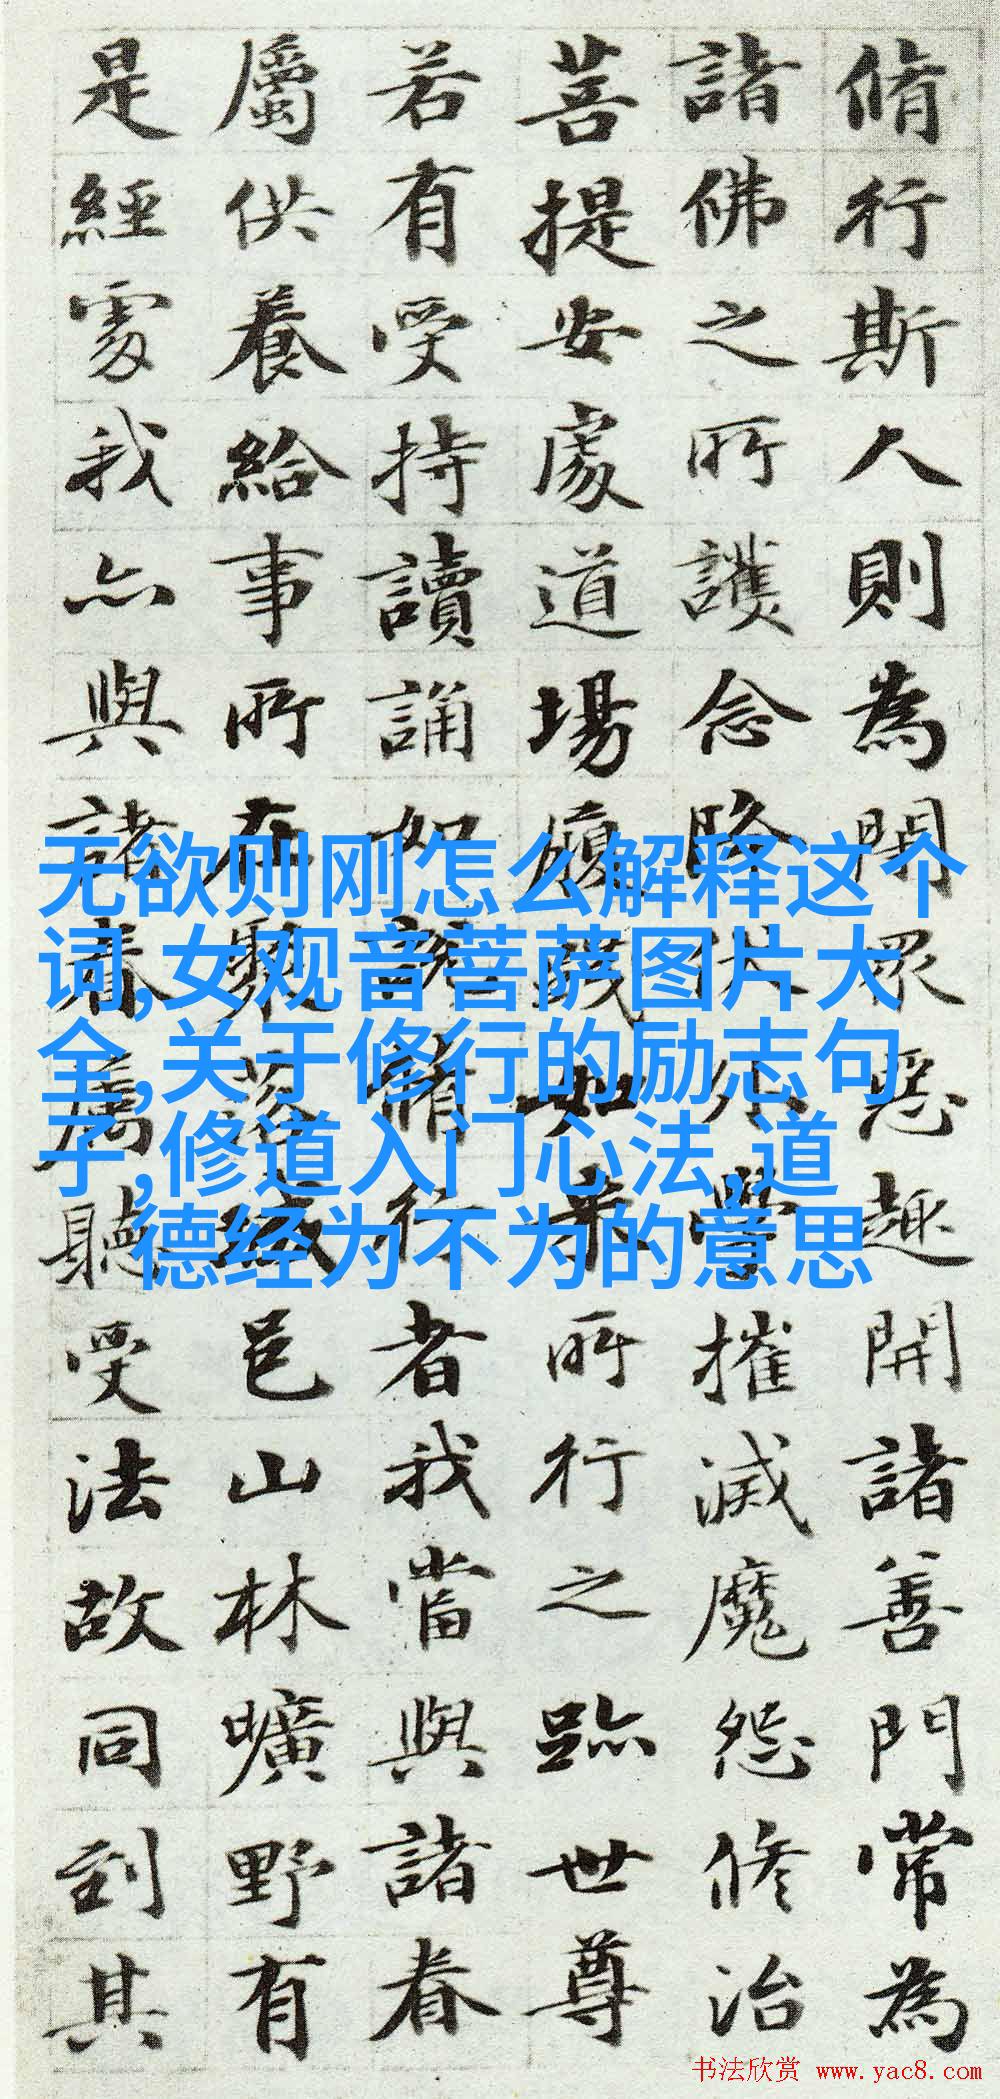 脩行斯人則為閇眾惡趣開諸善門常為
諸佛之所護念降伏外學摧滅魔怨修治
菩提安處道場履踐如来所行之跡世尊
若有受持讀誦如說脩行者我當與諸眷
屬供養給事所在聚落城邑山林曠野有
是經處我亦與諸眷屬聽受法故同到其
无欲则刚怎么解释这个
词,女观音菩萨图片大
全,关于修行的励志句
子,修道入门心法,道
德经为不为的意思
书法欣赏 www.yac8.com